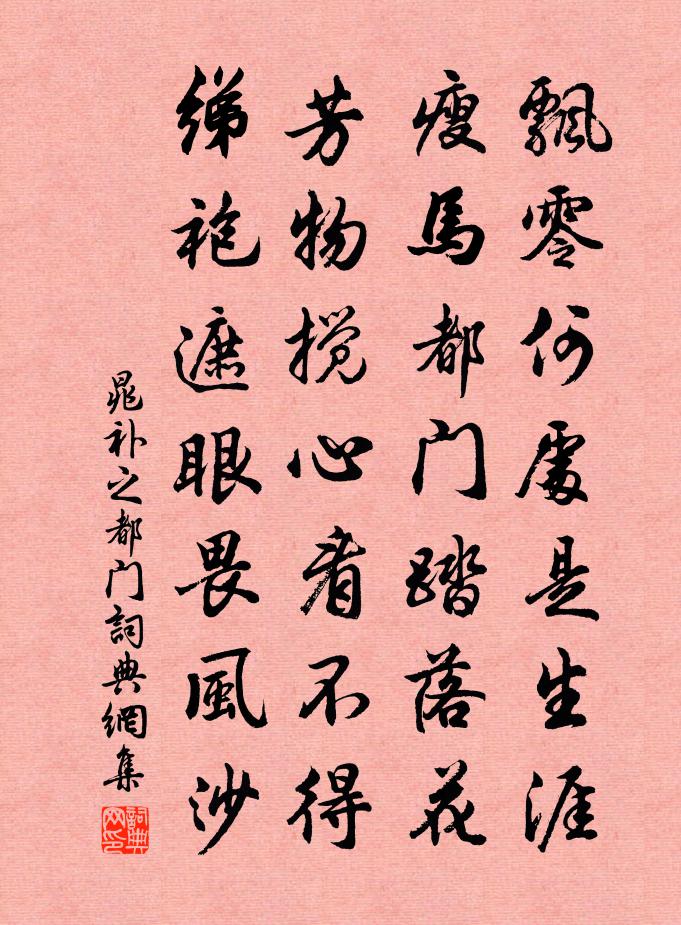 飄零何處是生涯
瘦馬都門踏落花
芳物攪心看不得
綈袍遮眼畏風沙
晁补之都门詞典網集
詞典网印